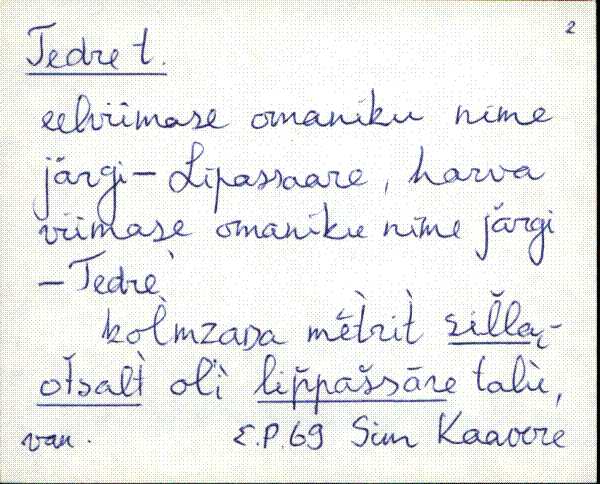 2
Tedre t.
eelviimase omaniku nime
järgi - Lipassaare, harva
viimase omaniku nime järgi
- Tedrè
kol̀mzaDa mètrit̀ silla-
otsalt̀ olì lippassāre talù,
van. E.P.69 Siim Kaavere